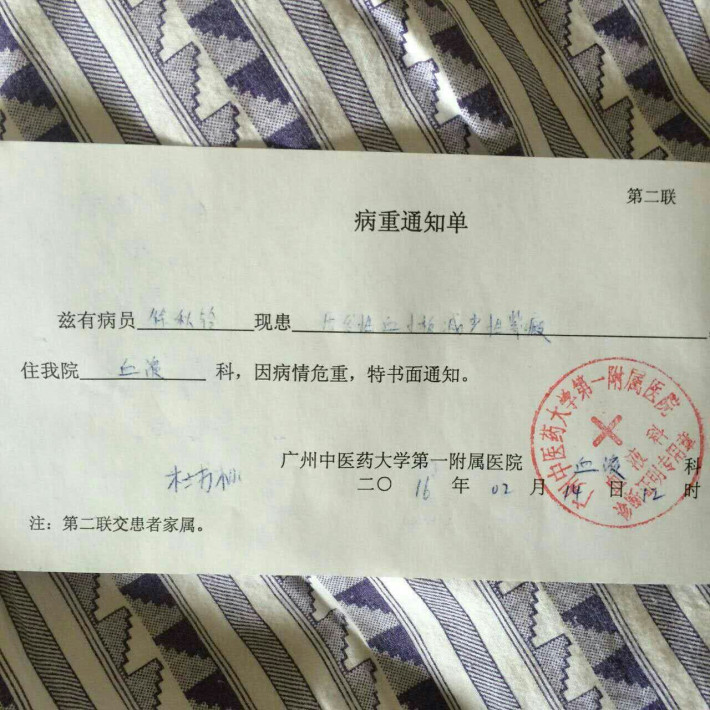 第二联
病重通知单
兹有病员 现患 血小板减少性紫癜
住我院 血液 科，因病情危重，特书面通知。
广州中医药大学第一附属医院 血液 科
二〇16年02月14日12时
注：第二联交患者家属。
广州中医药大学第一附属医院